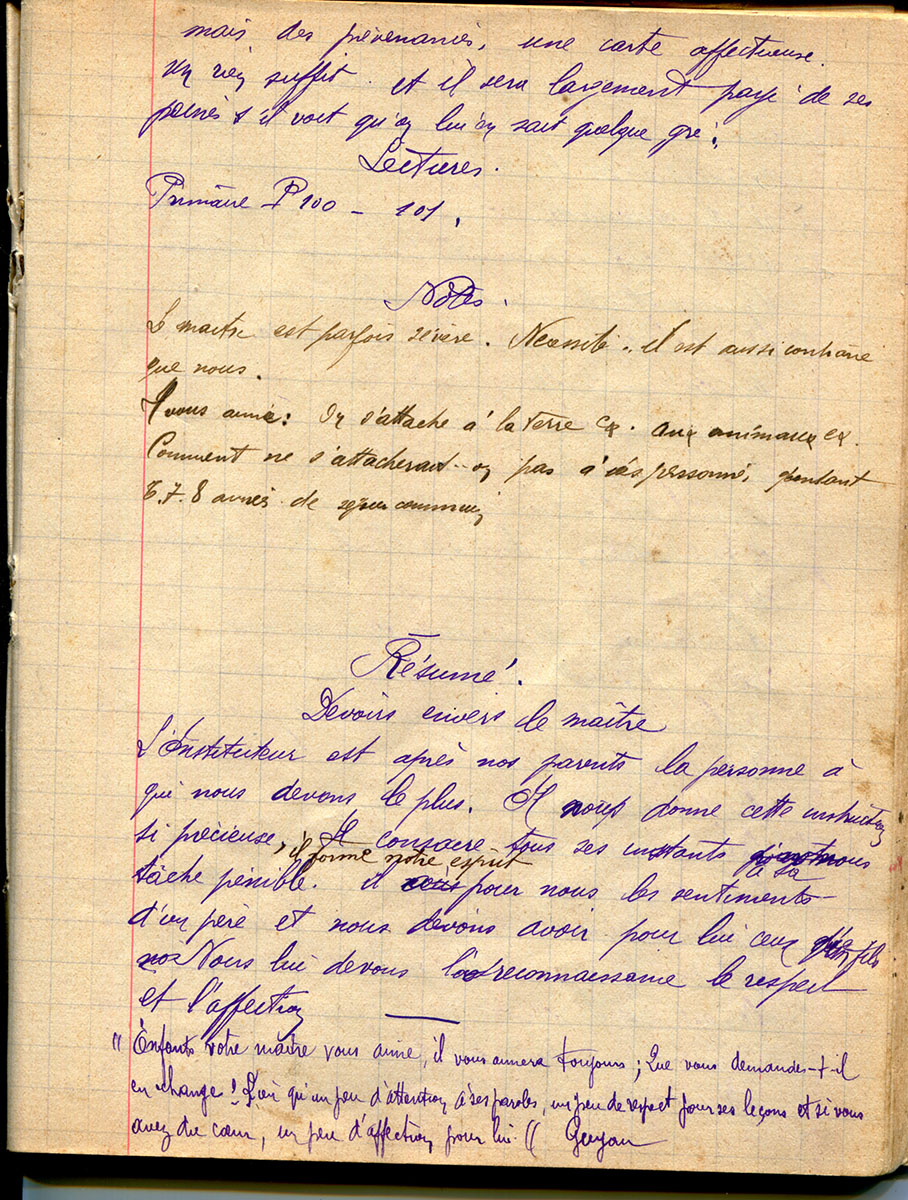 mais des prévenances, une carte affectueuse.
un rien suffit. et il sera largement payé de ses
peines s'il voit qu'on lui en sait quelque gré.
Lectures.
Primaire P 100 - 101.
Notes.
Le maître est parfois sévère. Nécessité.. il est aussi contrarié
que nous.
Il vous aime: On s'attache à la terre ex. aux animaux ex.
Comment ne s'attacherait-on pas à des personnes, pendant
6.7.8 années de séjour commun
Résumé.
Devoirs envers le maître
L'Instituteur est après nos parents la personne à
qui nous devons le plus. Il nous donne cette instruction
si précieuse, il forme notre esprit Il consacre tous ses instants à sa
tâche pénible. il a pour nous les sentiments
d'un père et nous devons avoir pour lui ceux d'un fils
Nous lui devons la reconnaissance le respect
et l'affection
" Enfants votre maître vous aime, il vous aimera toujours; Que vous demande-t-il
en échange! Rien qu'un peu d'attention à ses paroles, un peu de respect pour ses leçons et si vous
avez du cœur, un peu d'affection pour lui " Guyau